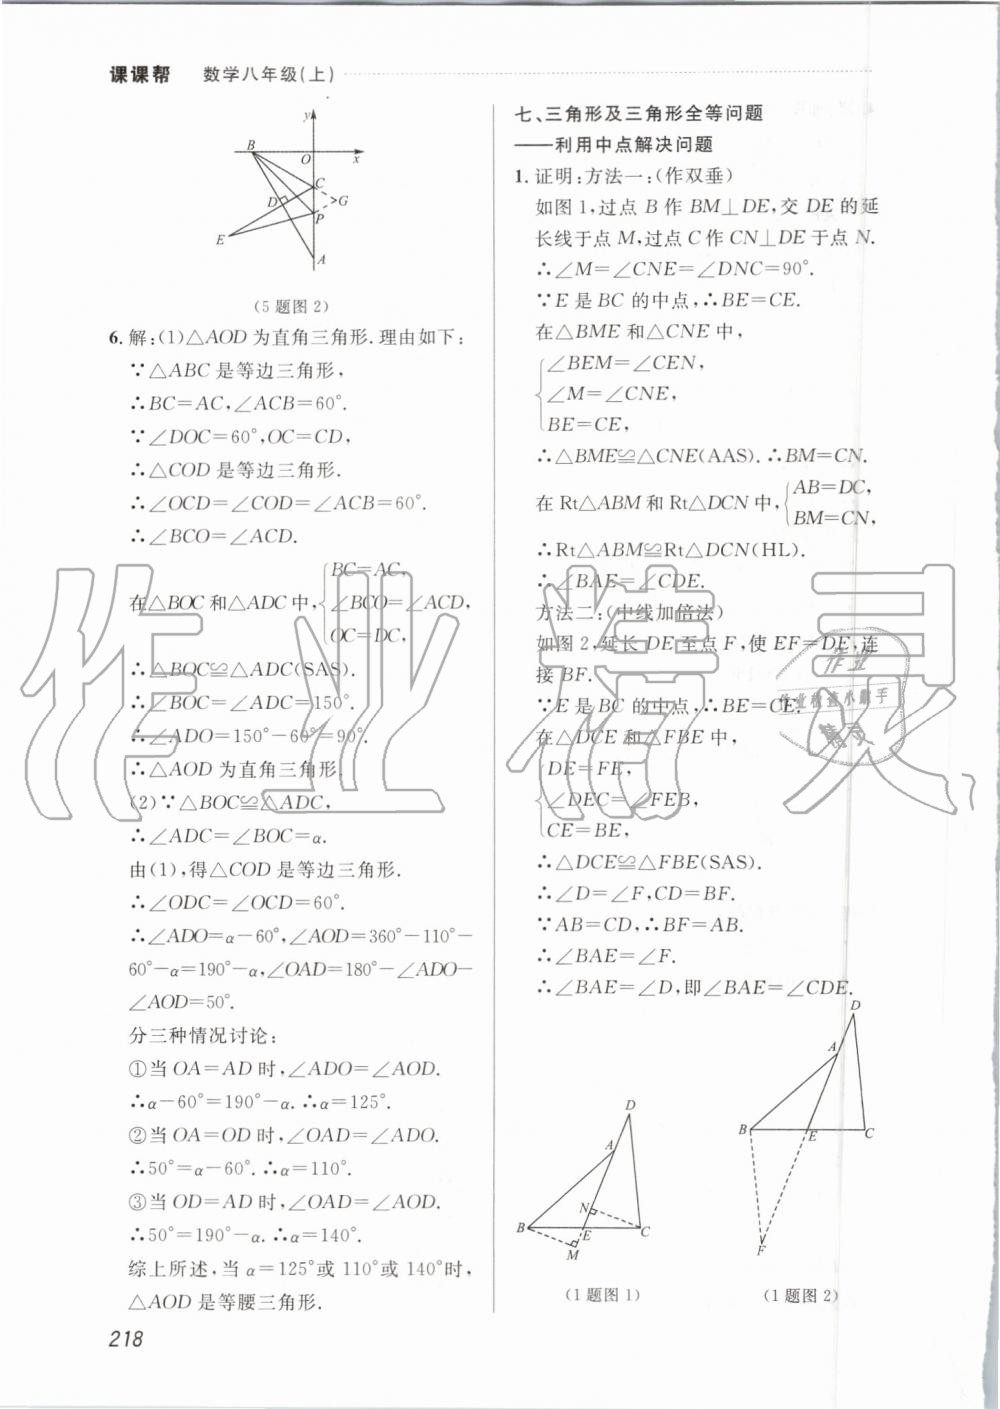 课课帮 数学八年级(上)
y
B
O
x
C
D
G
P
E
A
(5题图2)
6.解:(1)△AOD为直角三角形.理由如下:
∵△ABC是等边三角形,
∴BC=AC,∠ACB=60°.
∵∠DOC=60°,OC=CD,
∴△COD是等边三角形.
∴∠OCD=∠COD=∠ACB=60°.
∴∠BCO=∠ACD.
在△BOC和△ADC中,
BC=AC,
∠BCO=∠ACD,
OC=DC,
∴△BOC≌△ADC(SAS).
∴∠BOC=∠ADC=150°.
∴∠ADO=150°-60°=90°.
∴△AOD为直角三角形.
(2)∵△BOC≌△ADC,
∴∠ADC=∠BOC=α.
由(1),得△COD是等边三角形.
∴∠ODC=∠OCD=60°.
∴∠ADO=α-60°,∠AOD=360°-110°-
60°-α=190°-α,∠OAD=180°-∠ADO-
∠AOD=50°.
分三种情况讨论:
①当OA=AD时,∠ADO=∠AOD.
∴α-60°=190°-α.∴α=125°.
②当OA=OD时,∠OAD=∠ADO.
∴50°=α-60°.∴α=110°.
③当OD=AD时,∠OAD=∠AOD.
∴50°=190°-α.∴α=140°.
综上所述,当α=125°或110°或140°时,
△AOD是等腰三角形.
218
七、三角形及三角形全等问题
——利用中点解决问题
1.证明:方法一:(作双垂)
如图1,过点B作BM⊥DE,交DE的延
长线于点M,过点C作CN⊥DE于点N.
∴∠M=∠CNE=∠DNC=90°.
∵E是BC的中点,∴BE=CE.
在△BME和△CNE中,
∠BEM=∠CEN,
∠M=∠CNE,
BE=CE,
∴△BME≌△CNE(AAS).∴BM=CN.
在Rt△ABM和Rt△DCN中,
AB=DC,
BM=CN,
∴Rt△ABM≌Rt△DCN(HL).
∴∠BAE=∠CDE.
方法二:(中线加倍法)
如图2,延长DE至点F,使EF=DE,连
接BF.
∵E是BC的中点,∴BE=CE.
在△DCE和△FBE中,
DE=FE,
∠DEC=∠FEB,
CE=BE,
∴△DCE≌△FBE(SAS).
∴∠D=∠F,CD=BF.
∵AB=CD,∴BF=AB.
∴∠BAE=∠F.
∴∠BAE=∠D,即∠BAE=∠CDE.
D
A
N
B
E
C
M
(1题图1)
D
A
B
E
C
F
(1题图2)
作业精灵
作业
精灵